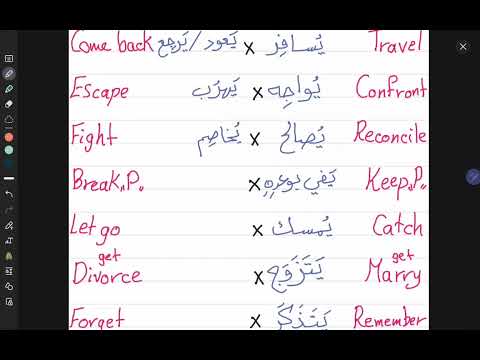 Come back يَعود / يَرجِع x يُسافِر Travel
Escape يَهرُب x يُواجِه Confront
Fight يُخاصِم x يُصالح Reconcile
Break..P. x يَفي بوعدِهِ Keep..P.
Let go x يُمسك Catch
get Divorce x يَتَزَوَج get Marry
Forget x يَتَذَكَرَ Remember